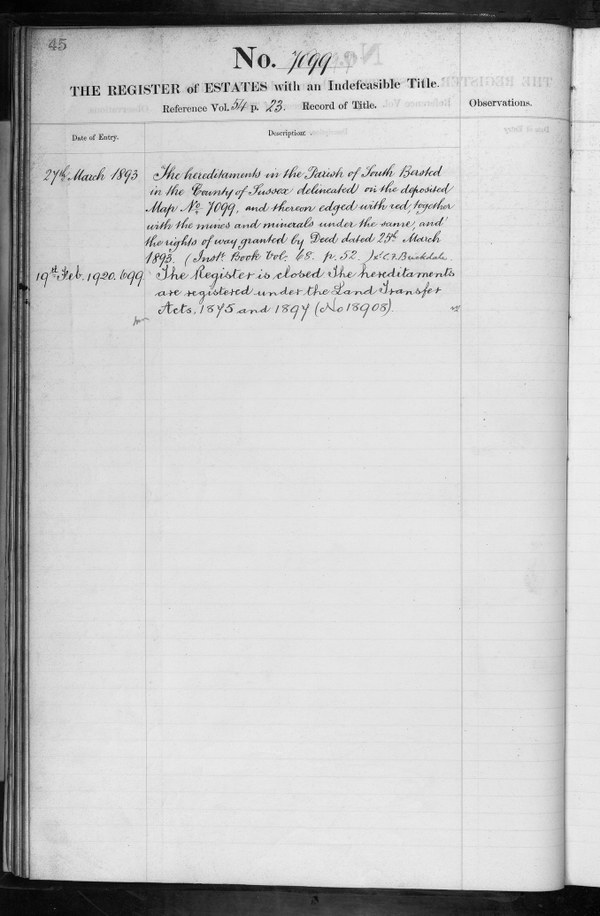 45
No. 7099
THE REGISTER of ESTATES with an Indefeasible Title.
Reference Vol. 54 p. 23. Record of Title.
Observations.
Date of Entry.
Description:
27th March 1893
The hereditaments in the Parish of South Bersted
in the County of Sussex delineated on the deposited
Map No. 7099, and thereon edged with red, together
with the mines and minerals under the same, and
the rights of way granted by Deed dated 25th March
1893. (Inst. Book Vol. 68. p. 52.) C. F. Brickdale.
19th Feb. 1920. 699.
The Register is closed The hereditaments
are registered under the Land Transfer
Acts, 1875 and 1897 (No 18908).